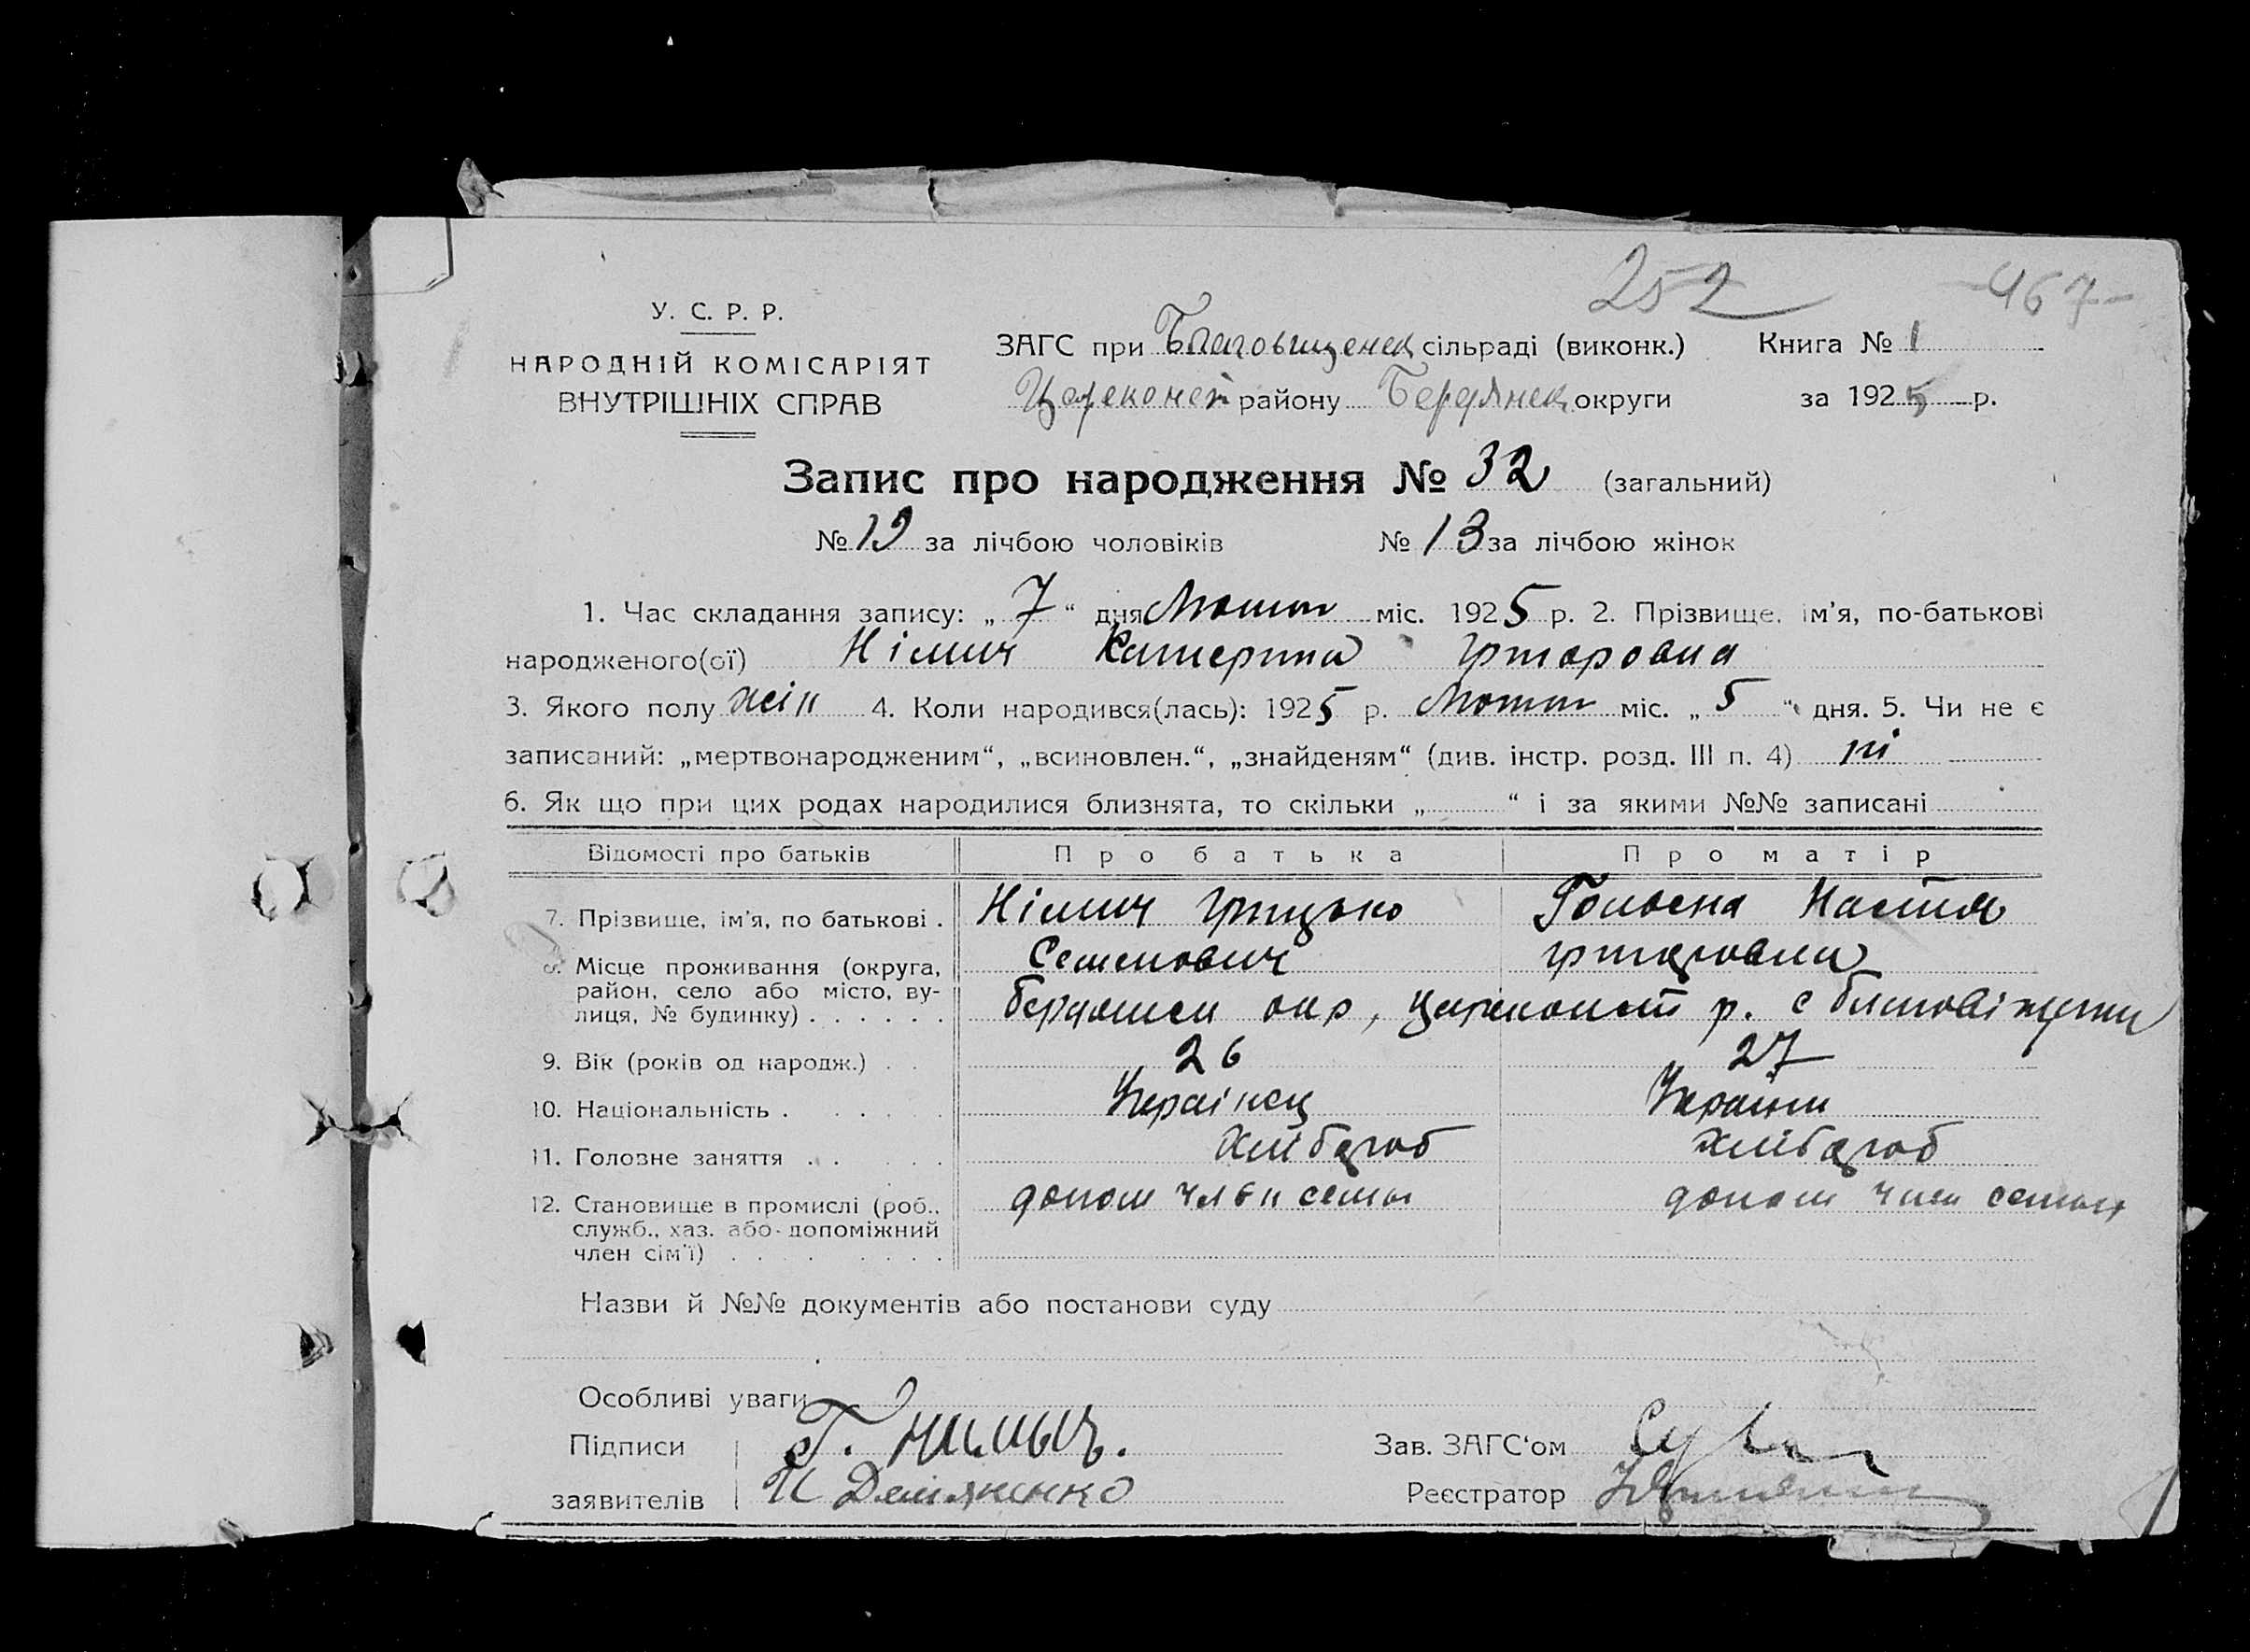 252 -467-
У. С. Р. Р.
НАРОДНІЙ КОМІСАРІЯТ
ВНУТРІШНІХ СПРАВ
ЗАГС при Благовищенск сільраді (виконк.) Книга № 1
Цареконст району Бердянск округи за 1925 р.
Запис про народження № 32 (загальний)
№ 19 за лічбою чоловіків № 13 за лічбою жінок
1. Час складання запису: „ 7 “ дня Лютого міс. 1925 р. 2. Прізвище, ім'я, по-батькові
народженого(ої) Німич Катерина Григоровна
3. Якого полу жін 4. Коли народився(лась): 1925 р. Лютого міс. „ 5 “ дня. 5. Чи не є
записаний: „мертвонародженим“, „всиновлен.“, „знайденям“ (див. інстр. розд. III п. 4) ні
6. Як що при цих родах народилися близнята, то скільки „ “ і за якими №№ записані
Відомості про батьків Про батька Про матір
7. Прізвище, ім'я, по батькові . Німич Грицько Настя
Семенович Григоровна
8. Місце проживання (округа,
район, село або місто, ву-
лиця, № будинку) . . . . . . Бердянск окр, Цареконст р. с Благовіщенка
9. Вік (років од народж.) . . 26 27
10. Національність . . . . . Українец Українка
11. Головне заняття . . . . . Хлібороб Хлібороб
12. Становище в промислі (роб.,
служб., хаз. або допоміжний
член сім'ї) . . . . . . . . допом член семьи допом член семьи
Назви й №№ документів або постанови суду
Особливі уваги
Підписи Г. Нимыч. Зав. ЗАГС‘ом
заявителів И Демяненко Реєстратор